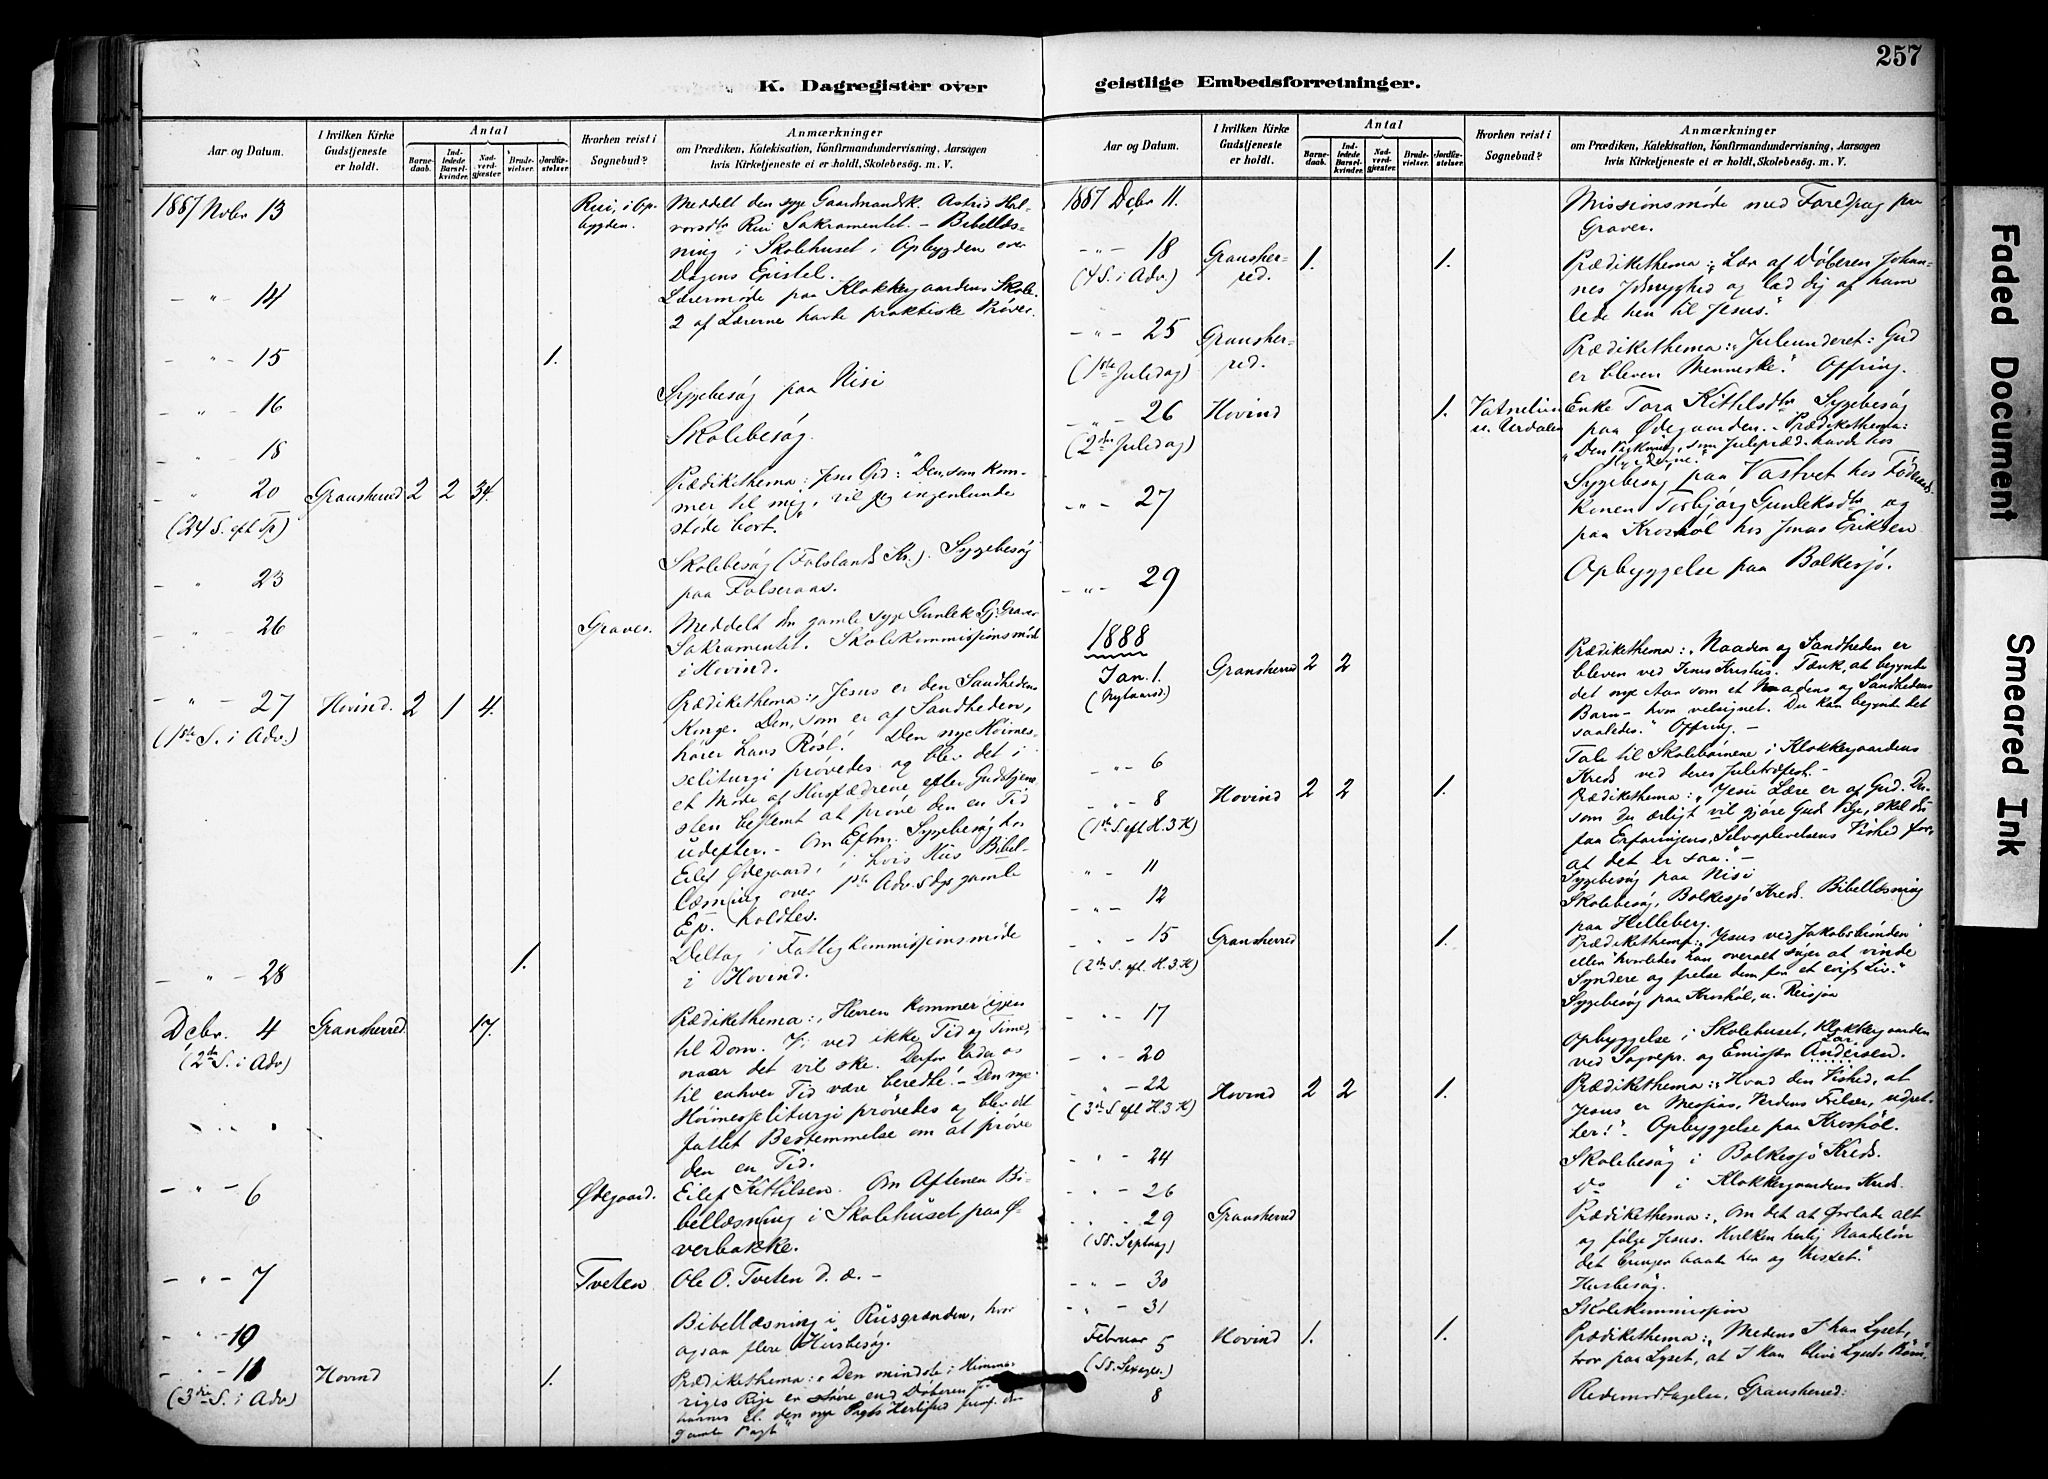 257
K. Dagregister over geistlige Embedsforretninger.
Aar og Datum.
I hvilken Kirke Gudstjeneste er holdt.
Antal
Barnedaab.
Indledede Barselkvinder.
Nadverdgjæster.
Brudevielser.
Jordfæstelser.
Hvorhen reist i Sognebud?
Anmærkninger
om Prædiken, Katekisation, Konfirmandundervisning, Aarsagen
hvis Kirketjeneste ei er holdt, Skolebesøg. m. V.
1887 Novbr 13 Rui, i Op- Meddelt den syge Gaardmandsk. Astrid Hal-
bygden. vorsdtr Rui Sakramentet. - Bibellæs-
ning i Skolehuset i Opbygden over
Dagens Epistel.
- " - 14 Lærermøde paa Klokkergaardens Skole.
2 af Lærerne havde praktiske Prøver.
- " - 15 1.
Sygebesøg paa Nisi
- " - 16 Skolebesøg.
- " - 18
- " - 20 Gransherred 2 2 34. Prædikethema: Jesu Ord: "Den, som kom-
(24 S. eft Tr) mer til mig, vil jeg ingenlunde
støde bort."
- " - 23 Skolebesøg (Folslands Kr.). Sygebesøg
paa Folseraas.
- " - 26 Graver. Meddelt den gamle syge Gunlek Gj. Graver
Sakramentet. Skolekommissionsmøde
i Hovind.
- " - 27 Hovind. 2 1 4. Prædikethema: "Jesus er den Sandhedens
(1ste S. i Adv.) Konge. Den, som er af Sandheden,
hører hans Røst." Den nye Høimes-
seliturgi prøvedes og blev det i
et Møde af Husfædrene efter Gudstjene-
sten bestemt at prøve den en Tid
udefter. - Om Eftm. Sygebesøg hos
Eilef Ødegaard, i hvis Hus Bibel-
læsning over 1ste Adv.sdgs gamle
Ep. holdtes.
- " - 28 1. Deltog i Fattigkommissionsmøde
i Hovind.
Dcbr. 4 Gransherred. 17. Prædikethema: "Herren kommer igjen
(2den S. i Adv) til Dom. Vi ved ikke Tid og Time,
naar det vil ske. Derfor lader os
til enhver Tid være beredte! - Den nye
Høimesseliturgi prøvedes og blev det
fattet Bestemmelse om at prøve
den en Tid.
- " - 6 Ødegaard. Eilef Kittilsen. Om Aftenen Bi-
bellæsning i Skolehuset paa Ø-
verbakke.
- " - 7 Tveten Ole O. Tveten d. æ. -
- " - 10 Bibellæsning i Rusgrænden, hvor
ogsaa flere Husbesøg.
- " - 11 Hovind 1. Prædikethema: "Den mindste i Himme-
(3die S. i Adv) riges Rige er større end Døberen Jo-
hannes el. den nye Pagts Herlighed fremf. den
gamle Pagt"
Aar og Datum.
I hvilken Kirke Gudstjeneste er holdt.
Antal
Barnedaab.
Indledede Barselkvinder.
Nadverdgjæster.
Brudevielser.
Jordfæstelser.
Hvorhen reist i Sognebud?
Anmærkninger
om Prædiken, Katekisation, Konfirmandundervisning, Aarsagen
hvis Kirketjeneste ei er holdt, Skolebesøg. m. V.
1887 Dcbr 11. Missionsmøde med Foredrag paa
Graver.
- " - 18 Gransher- 1. 1. Prædikethema: "Lær af Døberen Johan-
(4 S. i Adv.) red. nes Ydmyghed og lad dig af ham
lede hen til Jesus."
- " - 25 Gransher- Prædikethema: "Juleunderet: Gud
(1ste Juledag) red. er bleven Menneske." Offring.
- " - 26 Hovind 1. Enke Tora Kittilsdtr Sygebesøg
(2den Juledag) u. Urdalen paa Ødegaarden. - Prædikethema:
"Den Virkning, som Julepræd. havde hos
Hyrderne."
- " - 27 Sygebesøg paa Vastvet hos Føderaads-
konen Torbjørg Gunleksdtr og
paa Kroshøl hos Jonas Eriksen
- " - 29 Opbyggelse paa Bolkesjø.
1888
Jan. 1. Gransherred 2 2 Prædikethema: "Naaden og Sandheden er
(Nytaarsd.) bleven ved Jesus Kristus. Tænk, at begynde
det nye Aar som et Naadens og Sandhedens
Barn - hvor velsignet. Du kan begynde det
saaledes." Offring. -
- " - 6 Tale til Skolebørnene i Klokkergaardens
Kreds ved deres Juletræfest. -
- " - 8 Hovind 2 2 1. Prædikethema: "Jesu Lære er af Gud. Der-
(1ste S. eft H. 3 K) som Du ærligt vil gjøre Guds Vilje, skal du
paa Erfaringens, Selvoplevelsens Vished for,
at det er saa. -
" - 11 Sygebesøg paa Nisi
- " - 12 Skolebesøg, Bolkesjø Kreds. Bibellæsning
paa Helleberg.
- " - 15 Gransherred 1. Prædikethema: "Jesus ved Jakobsbrønden"
(2den S. eft. H. 3. K) eller hvorledes han overalt søger at vinde
Syndere og frelse dem for et evigt Liv."
- " - 17 Sygebesøg paa Kroshøl, u. Reisjaa
- " - 20 Opbyggelse i Skolehuset, Klokkergaarden
ved Sognepr. og Emissær Lars Andersen.
" - 22 Hovind 2 2 1. Prædikethema: "Hvad den Vished, at
(3die S eft H. 3 K) Jesus er Messias, Verdens Frelser, udret-
ter!" - Opbyggelse paa Kroshøl.
- " - 24 Skolebesøg i Bolkesjø Kreds.
- " - 26 Do i Klokkergaardens Kreds.
" " 29 Gransherred Prædikethema: "Om det at forlade alt
(Sd. Septuag) og følge Jesus. Hvilken herlig Naadeløn
det bringer baade her og hisset."
- " - 30 Husbesøg.
- " - 31 Skolekommission
Februar 5 Hovind 1. 1. Prædikethema: "Medens I har Lyset,
(Sd. Sexages.) tror paa Lyset, at I kan blive Lysets Børn".
8 Redemodtagelse, Gransherred.
Faded Document
Smeared Ink